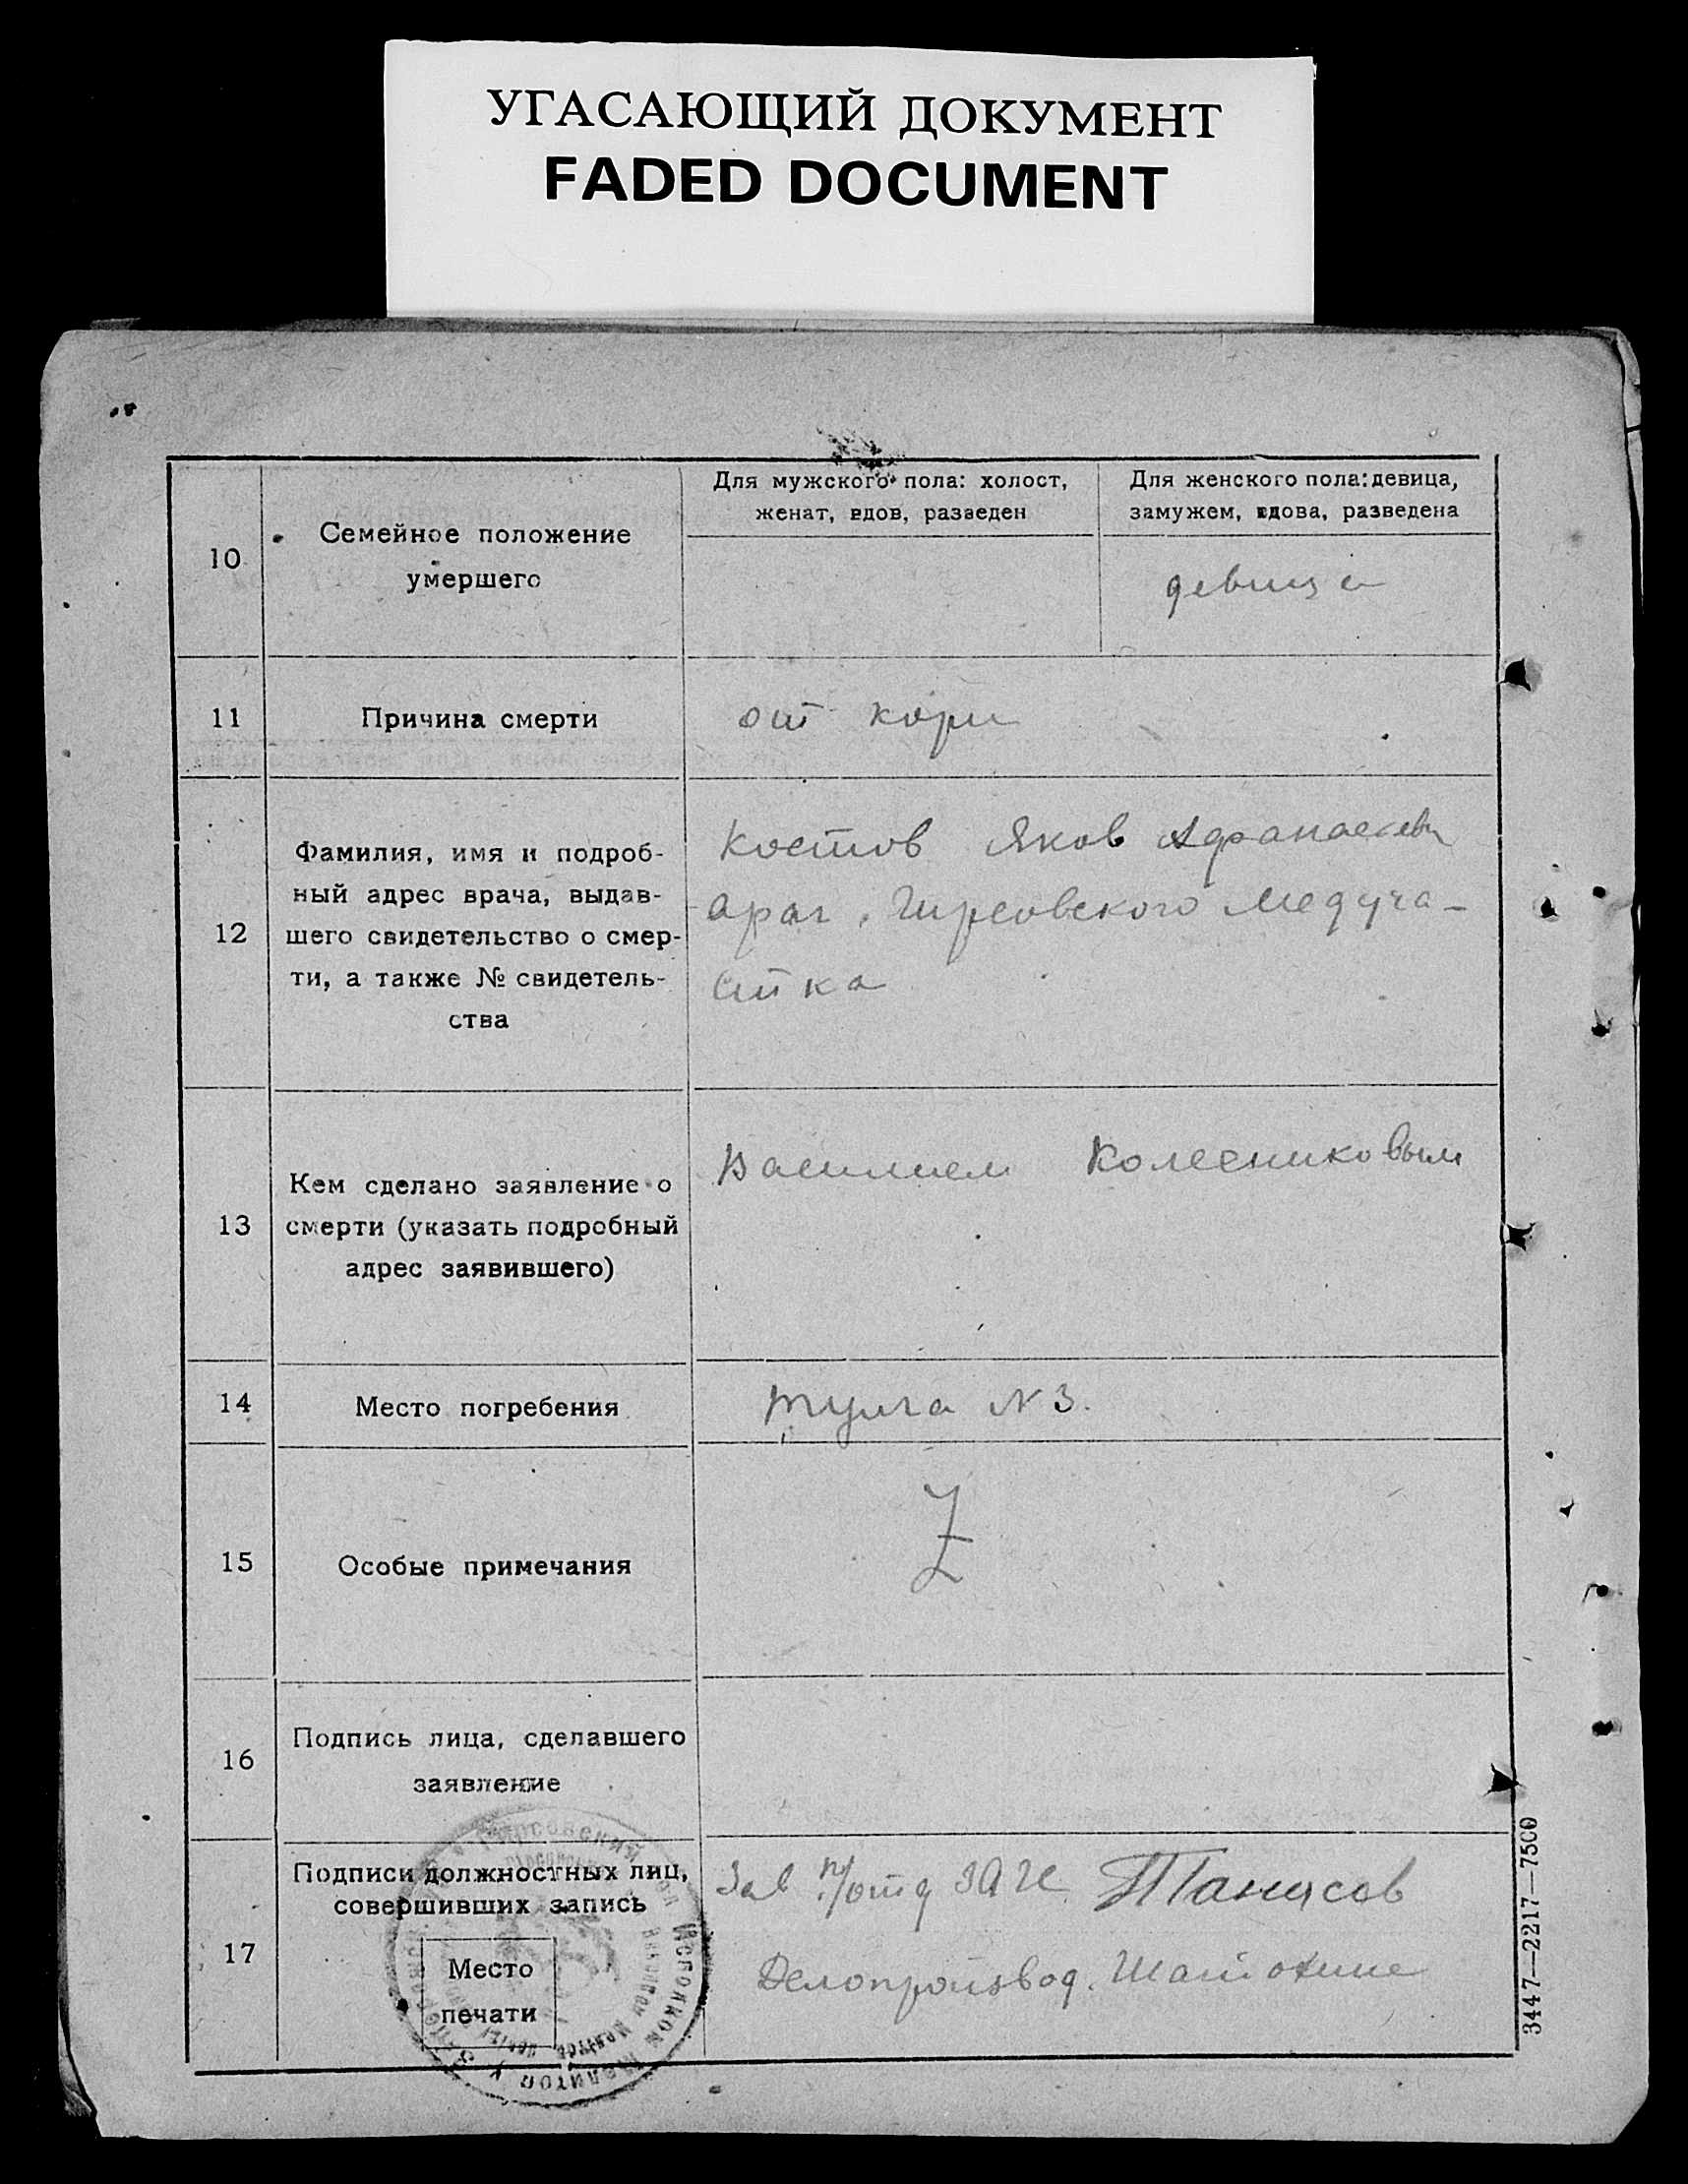 УГАСАЮЩИЙ ДОКУМЕНТ
FADED DOCUMENT
10
Семейное положение
умершего
Для мужского пола: холост,
женат, вдов, разведен
Для женского пола: девица,
замужем, вдова, разведена
девица
11
Причина смерти
от кори
12
Фамилия, имя и подроб-
ный адрес врача, выдав-
шего свидетельство о смер-
ти, а также № свидетель-
ства
Костов Яков Афанасьеви
Гирсовского Медуча-
стка
13
Кем сделано заявление о
смерти (указать подробный
адрес заявившего)
Василием Колесниковым
14
Место погребения
N 3.
15
Особые примечания
Z
16
Подпись лица, сделавшего
заявление
17
Подписи должностных лиц,
совершивших запись
Место
печати
Зав п/отд ЗАГС
Делопроизвод.
3447—2217—7500